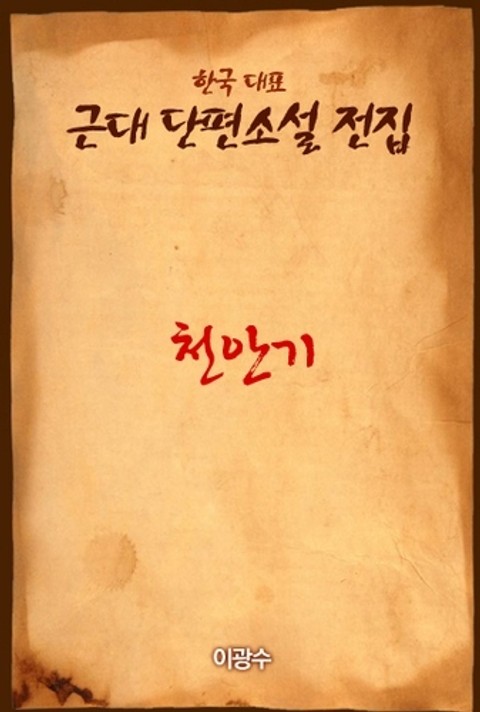 한국 대표
근대 단편소설 전집
천안기
이광수